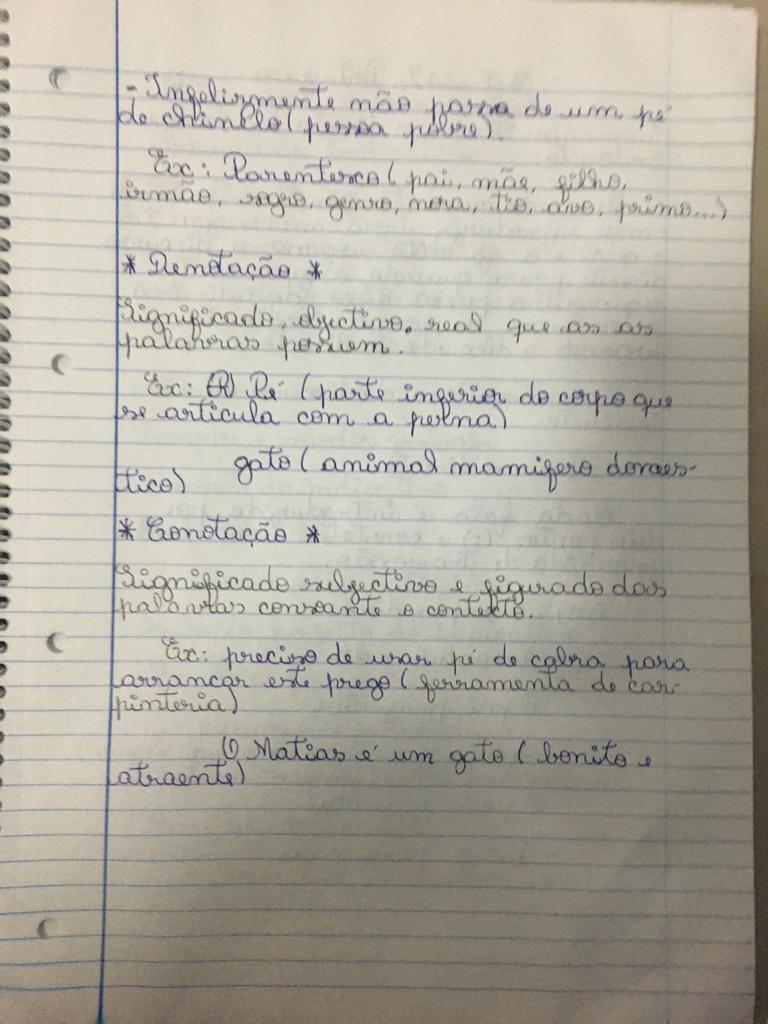 - Infelizmente não passa de um pé
de chinelo (pessoa pobre).
Ex: Parentesco (pai, mãe, filho,
irmão, sogro, genro, nora, tio, avo, primo...)
* Denotação *
Significado, objectivo, real que as as
palavras possuem.
Ex: Pé (parte inferior do corpo que
se articula com a perna)
gato (animal mamifero domes-
tico)
* Conotação *
Significado subjectivo e figurado das
palavras consoante o contexto.
Ex: preciso de usar pé de cabra para
arrancar este prego (ferramenta de car-
pinteria)
O Matias é um gato (bonito e
atraente)